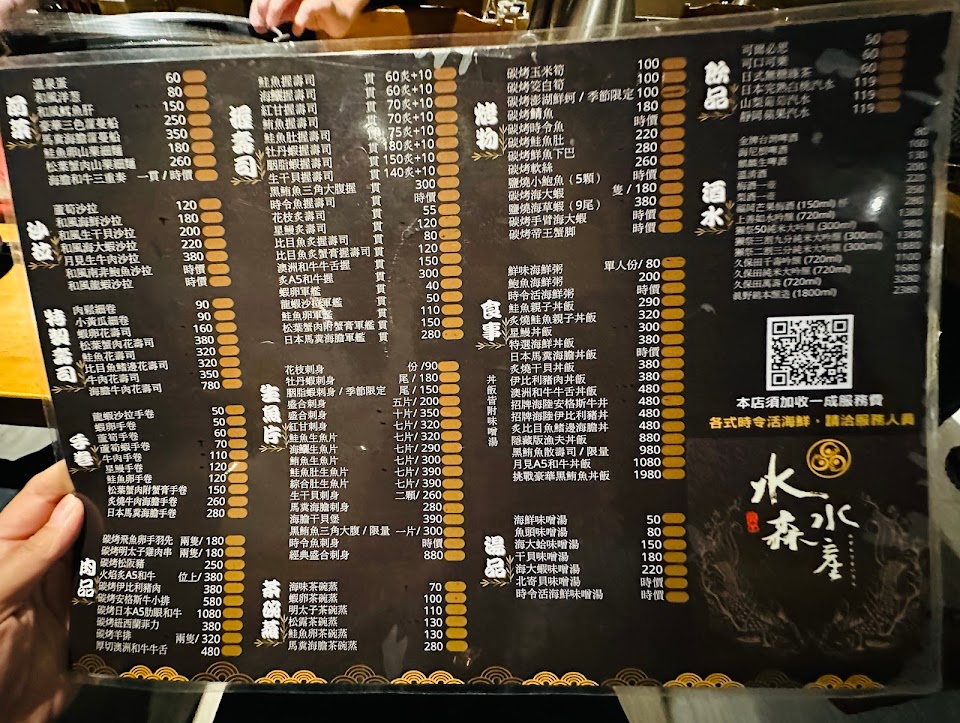 前菜
溫泉蛋 60
和風洋蔥 80
和風鱈魚肝 150
豪華三色百蔓船 250
馬糞海膽蘿蔓船 350
鮭魚卵山藥細麵 180
松葉蟹肉山藥細麵 260
海膽和牛三重奏 一貫/時價
沙拉
蘆筍沙拉 120
和風海鮮沙拉 180
和風生干貝沙拉 200
和風海大蝦沙拉 220
月見生牛肉沙拉 380
和風南非鮑魚沙拉 時價
和風龍蝦沙拉 時價
特製壽司
肉鬆細卷 90
小黃瓜細卷 90
蝦卵花壽司 160
松葉蟹肉花壽司 380
鮭魚花壽司 320
比目魚鰭邊花壽司 320
牛肉花壽司 350
海膽牛肉花壽司 780
手卷
龍蝦沙拉手卷 50
蝦卵手卷 50
蘆筍手卷 60
蘆筍蝦手卷 70
牛肉手卷 110
星鰻手卷 120
鮭魚卵手卷 120
松葉蟹肉附蟹膏手卷 150
炙燒牛肉海膽手卷 260
日本馬糞海膽手卷 280
肉品
碳烤飛魚卵手羽先 兩隻/180
碳烤明太子雞肉串 兩隻/180
碳烤松阪豬 250
火焰炙A5和牛 位上/380
碳烤伊比利豬 380
碳烤安格斯牛小排 580
碳烤日本A5肋眼和牛 1080
碳烤紐西蘭菲力 380
碳烤羊排 兩隻/320
厚切澳洲和牛牛舌 480
握壽司
鮭魚握壽司 貫 60炙+10
海鱺握壽司 貫 60炙+10
紅甘握壽司 貫 70炙+10
鮪魚握壽司 貫 70炙+10
鮭魚肚握壽司 貫 75炙+10
牡丹蝦握壽司 貫 80炙+10
胭脂蝦握壽司 貫 150炙+10
生干貝握壽司 貫 140炙+10
黑鮪魚三角大腹握 貫 300
時令魚握壽司 貫 時價
花枝炙壽司 貫 55
星鰻炙壽司 貫 120
比目魚炙握壽司 貫 120
比目魚炙蟹膏握壽司 貫 120
澳洲和牛牛舌握 貫 150
炙A5和牛握 貫 300
蝦卵軍艦 貫 40
龍蝦沙拉軍艦 貫 50
鮭魚卵軍艦 貫 110
松葉蟹肉附蟹膏軍艦 貫 150
日本馬糞海膽軍艦 貫 280
生魚片
花枝刺身 份/90
牡丹蝦刺身 尾/180
胭脂蝦刺身/季節限定 尾/150
盛合刺身 五片/200
盛合刺身 十片/350
紅甘刺身 七片/320
鮭魚生魚片 七片/290
海鱺生魚片 七片/300
鮪魚生魚片 七片/320
鮭魚肚生魚片 七片/390
綜合肚生魚片 七片/390
生干貝刺身 二顆/260
馬糞海膽刺身 280
海膽干貝堡 390
黑鮪魚三角大腹/限量 一片/300
時令魚刺身 時價
經典盛合刺身 880
茶碗蒸
海味茶碗蒸 70
蝦卵茶碗蒸 100
明太子茶碗蒸 110
松露茶碗蒸 130
鮭魚卵茶碗蒸 130
馬糞海膽茶碗蒸 280
烤物
碳烤玉米筍 100
碳烤筊白筍 100
碳烤澎湖鮮蚵/季節限定 100
碳烤鯖魚 180
碳烤時令魚 時價
碳烤鮭魚肚 220
碳烤鮮魚下巴 280
碳烤軟絲 260
鹽燒小鮑魚(5顆) 280
碳烤海大蝦 隻/180
鹽燒海草蝦(9尾) 380
碳烤手臂海大蝦 時價
碳烤帝王蟹腳 時價
食事
鮮味海鮮粥 單人份/80
鮑魚海鮮粥 200
時令活海鮮粥 時價
鮭魚親子丼飯 290
炙燒鮭魚親子丼飯 320
星鰻丼飯 300
特選海鮮丼飯 380
日本馬糞海膽丼飯 時價
伊比利豬肉丼飯 380
澳洲和牛牛舌丼飯 480
招牌海陸安格斯牛丼 480
招牌海陸伊比利豬丼 480
炙比目魚鰭邊海膽丼 480
隱藏版漁夫丼飯 880
黑鮪魚散壽司/限量 980
月見A5和牛丼飯 1080
挑戰豪華黑鮪魚丼飯 1980
丼飯皆附味噌湯
湯品
海鮮味噌湯 50
魚頭味噌湯 80
海大蛤味噌湯 150
干貝味噌湯 180
海大蝦味噌湯 220
北寄貝味噌湯 時價
時令活海鮮味噌湯 時價
飲品
可爾必思 50
可口可樂 60
日式無糖綠茶 80
日本完熟白桃汽水 119
山梨葡萄汽水 119
靜岡蘋果汽水 119
酒水
金牌台灣啤酒 80
上善如水吟釀(720ml)
獺祭50純米大吟釀(300ml)
久保田千壽吟釀(720ml)
久保田純米大吟釀(720ml)
久保田萬壽(720ml)
本店須加收一成服務費
各式時令活海鮮，請洽服務人員
水森水產